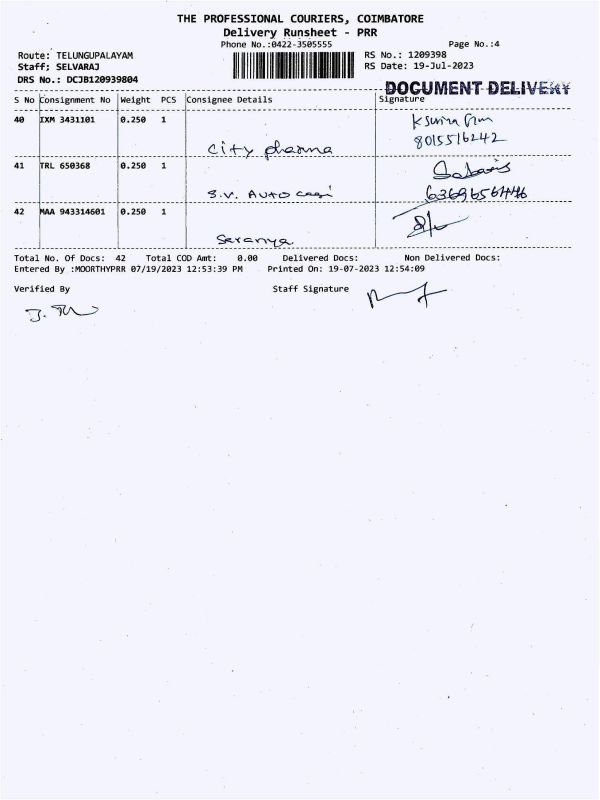 THE PROFESSIONAL COURIERS, COIMBATORE
Delivery Runsheet - PRR
Phone No.:0422-3505555 Page No.:4
Route: TELUNGUPALAYAM RS No.: 1209398
Staff: SELVARAJ RS Date: 19-Jul-2023
DRS No.: DCJB120939804
DOCUMENT DELIVERY
S No Consignment No Weight PCS Consignee Details Signature
40 IXM 3431101 0.250 1
8015516242
City pharma
41 TRL 650368 0.250 1
S.V. Auto
42 MAA 943314601 0.250 1
Saranya
Total No. Of Docs: 42 Total COD Amt: 0.00 Delivered Docs: Non Delivered Docs:
Entered By :MOORTHYPRR 07/19/2023 12:53:39 PM Printed On: 19-07-2023 12:54:09
Verified By Staff Signature